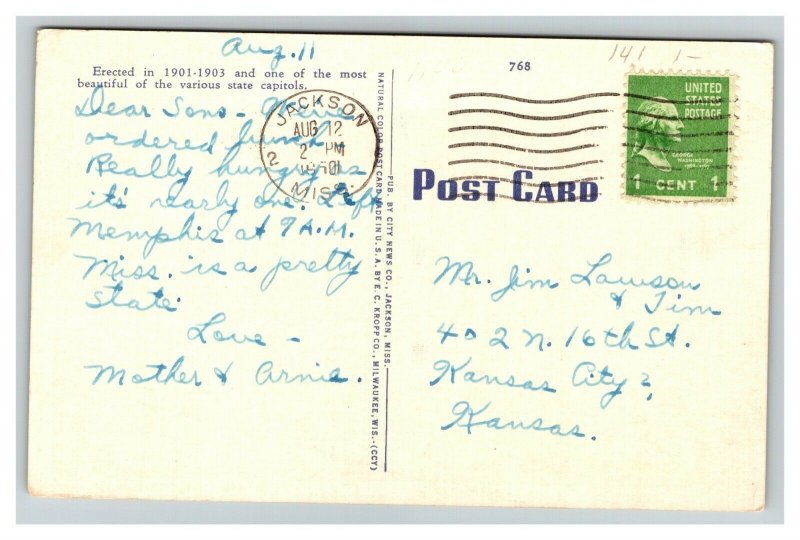 Aug. 11
768
141 1-
Erected in 1901-1903 and one of the most
beautiful of the various state capitols.
Dear Sons - Have
ordered lunch
Really hungry as
it's nearly one. Left
Memphis at 9 A.M.
Miss. is a pretty
state.
Love -
Mother & Arnie.
JACKSON
AUG 12
2 PM
MISS.
2
NATURAL COLOR POST CARD MADE IN U.S.A. BY E. C. KROPP CO., MILWAUKEE, WIS.-(CCY)
PUB. BY CITY NEWS CO., JACKSON, MISS.
POST CARD
UNITED
STATES
POSTAGE
GEORGE
WASHINGTON
1 CENT 1
Mr. Jim Lawson
& Tim
402 N. 16th St.
Kansas City 2,
Kansas.